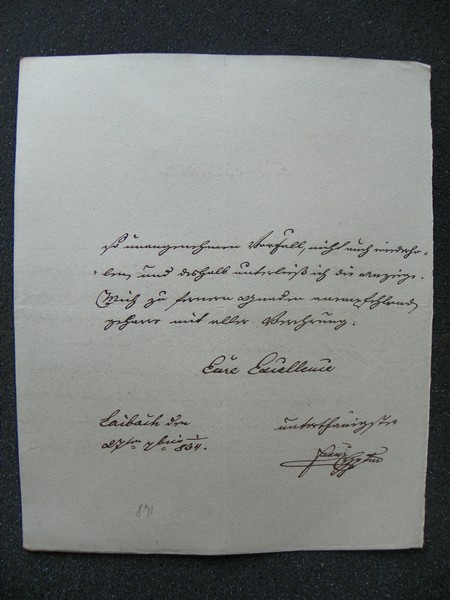 so unangenehmen Vorfall, nicht auch wiederho-
len, und deshalb unterließ ich die Anzeige.
Mich zu fernern Gnaden anempfehlend
geharre mit aller Verehrung.
Eure Excellence
Laibach den
27ten 7bris 1/834.
unterthänigster
Franz
891